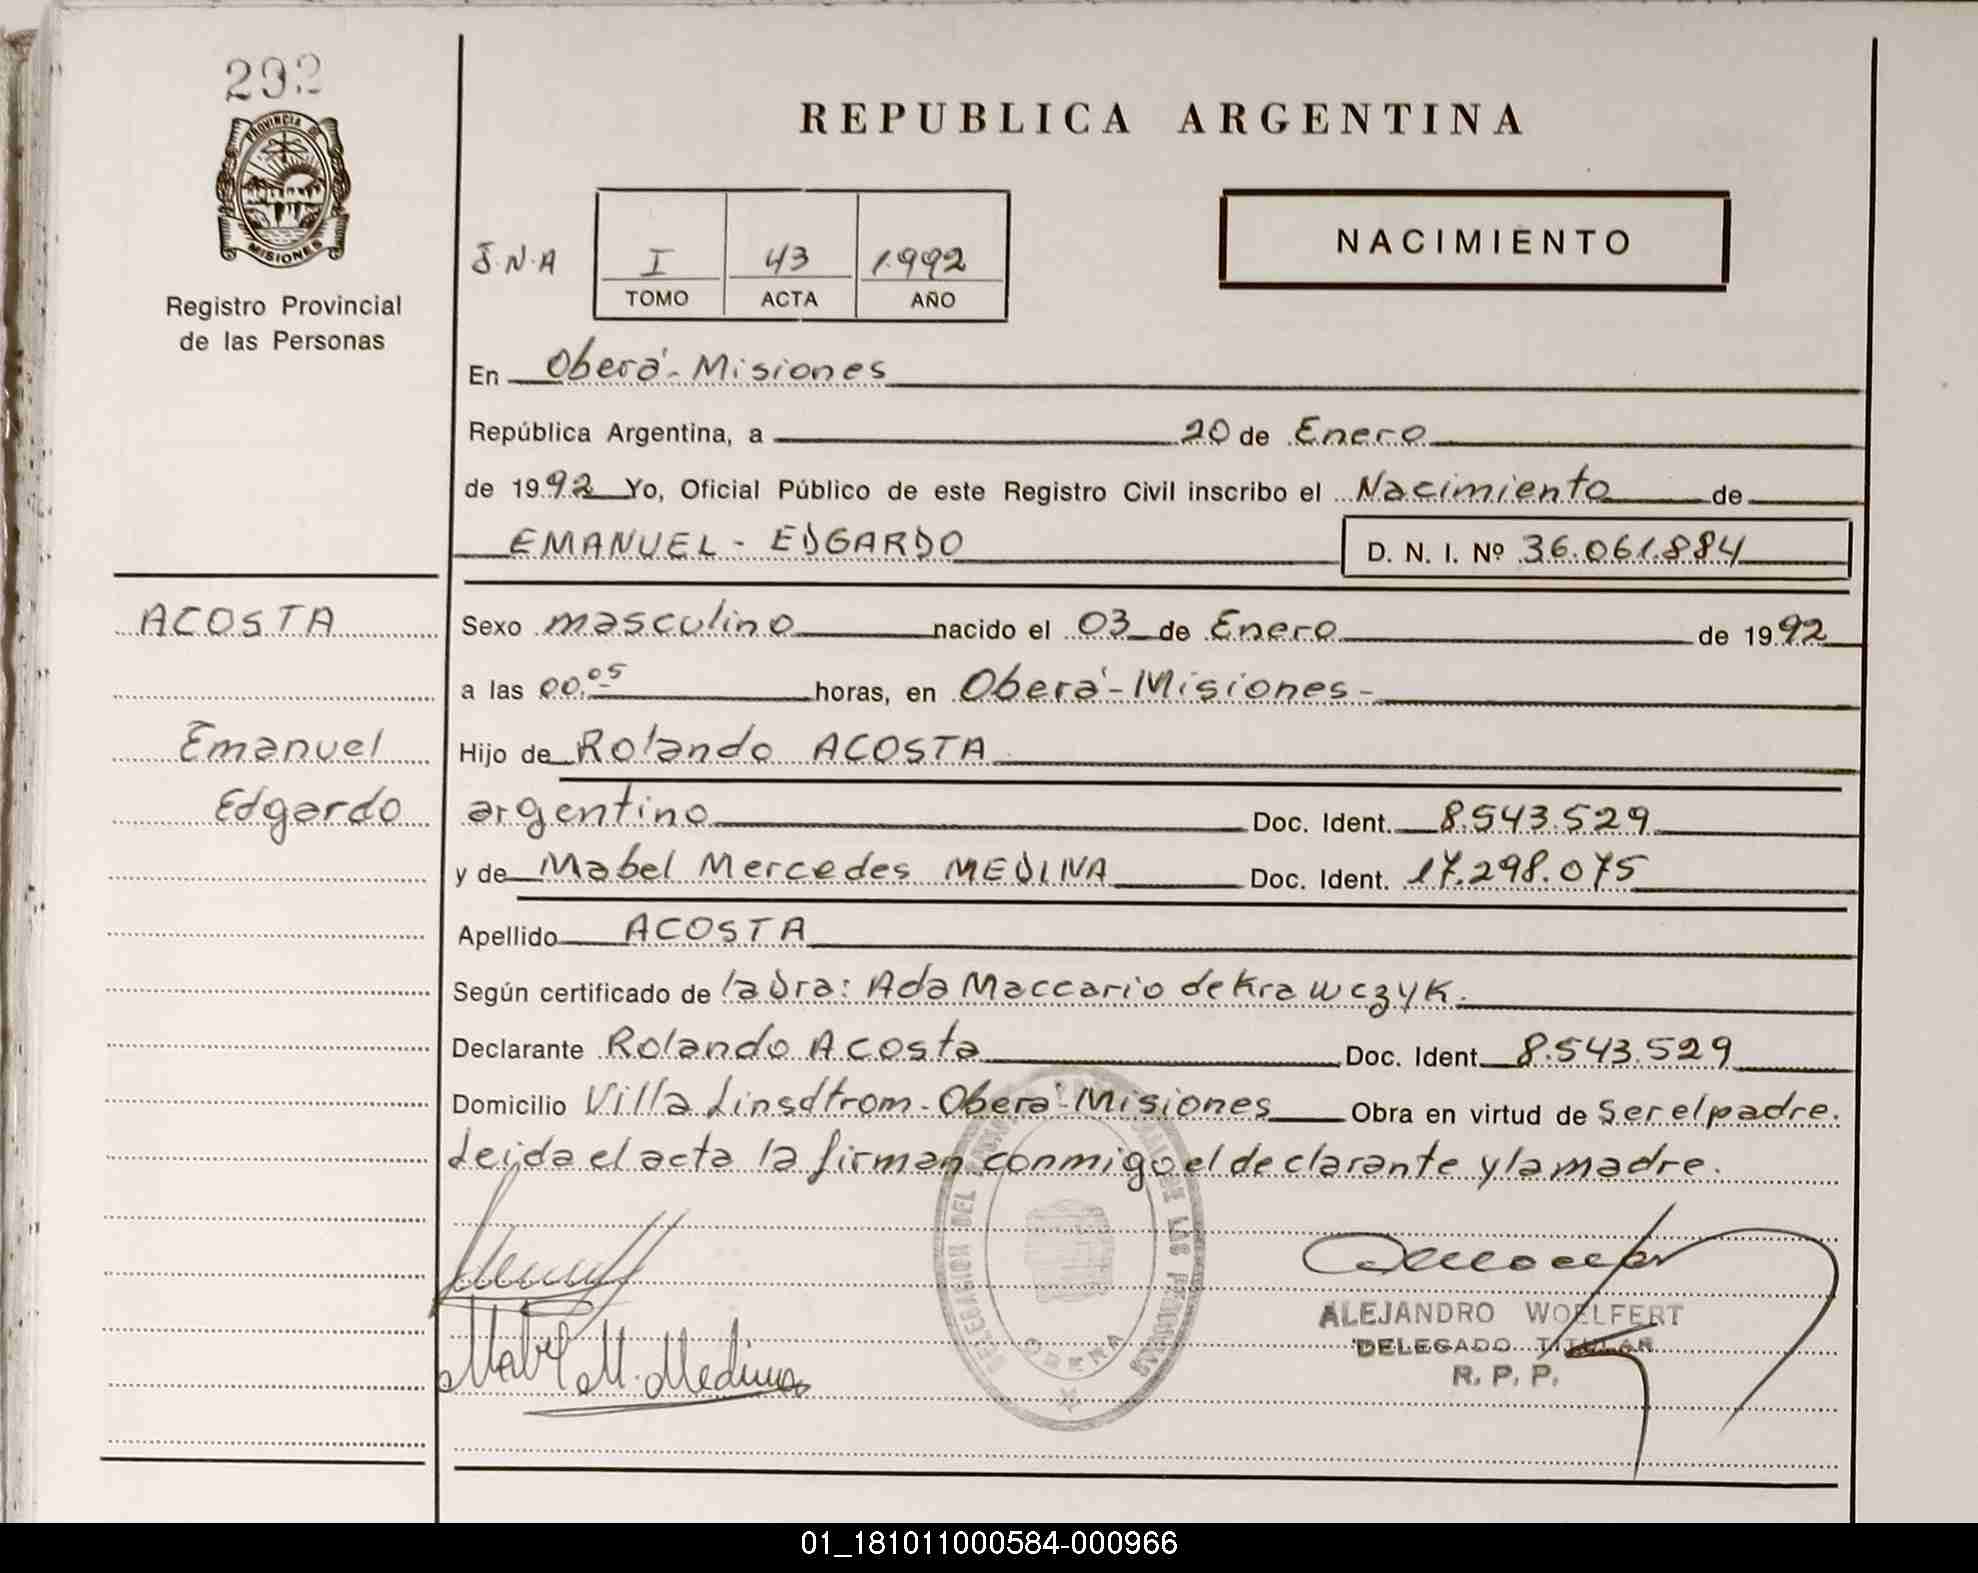 292
PROVINCIA DE
MISIONES
Registro Provincial
de las Personas
REPUBLICA ARGENTINA
NACIMIENTO
J.N.A
I 43 1992
TOMO ACTA AÑO
En Oberá - Misiones
República Argentina, a 20 de Enero
de 1992 Yo, Oficial Público de este Registro Civil inscribo el Nacimiento de
EMANUEL - EDGARDO D. N. I. Nº 36.061.884
ACOSTA
Emanuel
Edgardo
Sexo masculino nacido el 03 de Enero de 1992
a las 00.05 horas, en Oberá - Misiones -
Hijo de Rolando ACOSTA
argentino Doc. Ident. 8.543.529
y de Mabel Mercedes MEDINA Doc. Ident. 17.298.075
Apellido ACOSTA
Según certificado de la Dra: Ada Maccario de Krawczyk.
Declarante Rolando Acosta Doc. Ident. 8.543.529
Domicilio Villa Linsdtrom - Oberá - Misiones Obra en virtud de Ser el padre.
Leida el acta la firman conmigo el declarante y la madre.
Mabel M. Medina
DELEGACION DEL DE LAS PERSONAS
OBERA
ALEJANDRO WOELFERT
DELEGADO TITULAR
R. P. P.
01_181011000584-000966